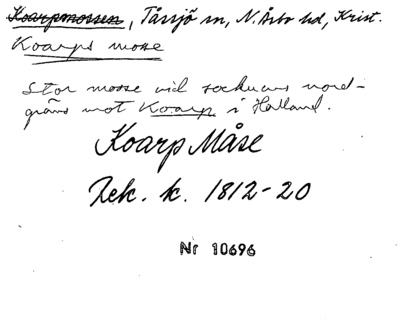 Koarpmossen, Tåssjö sn, N. Åsbo hd, Krist.
Koarps mosse
Stor mosse vid socknens nord-
gräns mot Koarp i Halland.
Koarp Måse
Rek. k. 1812-20
Nr 10696